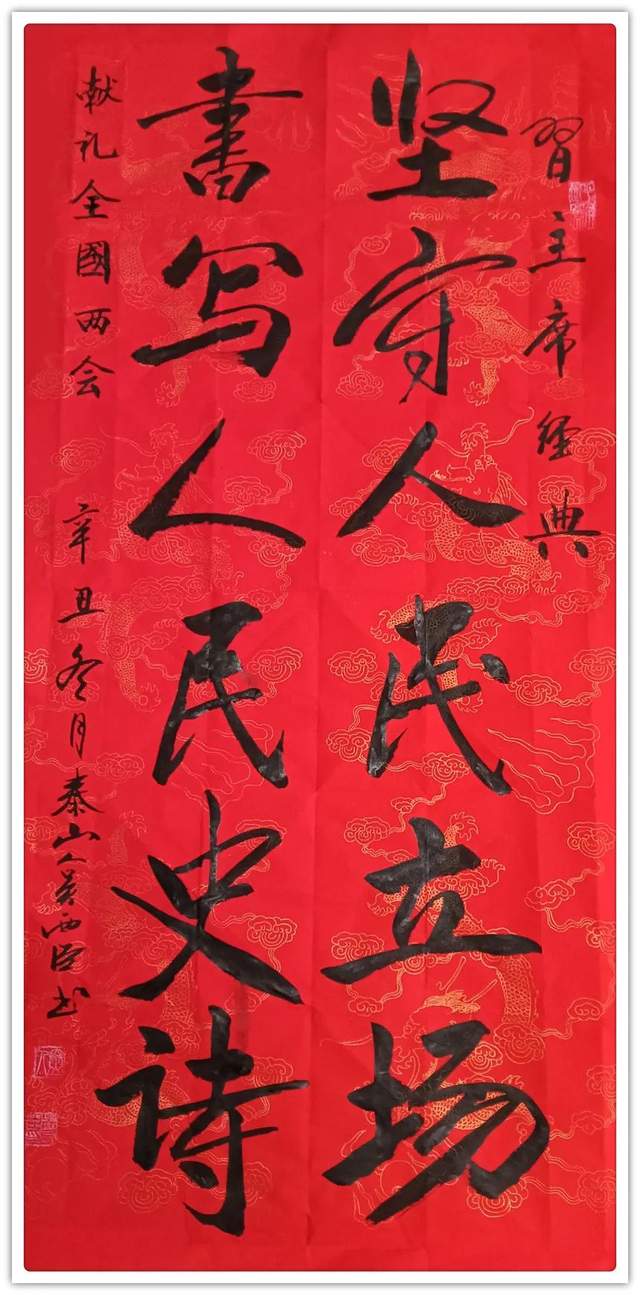 習主席經典
坚守人民立场
書写人民史诗
献礼全國两会
辛丑冬月泰山人吴西臣书